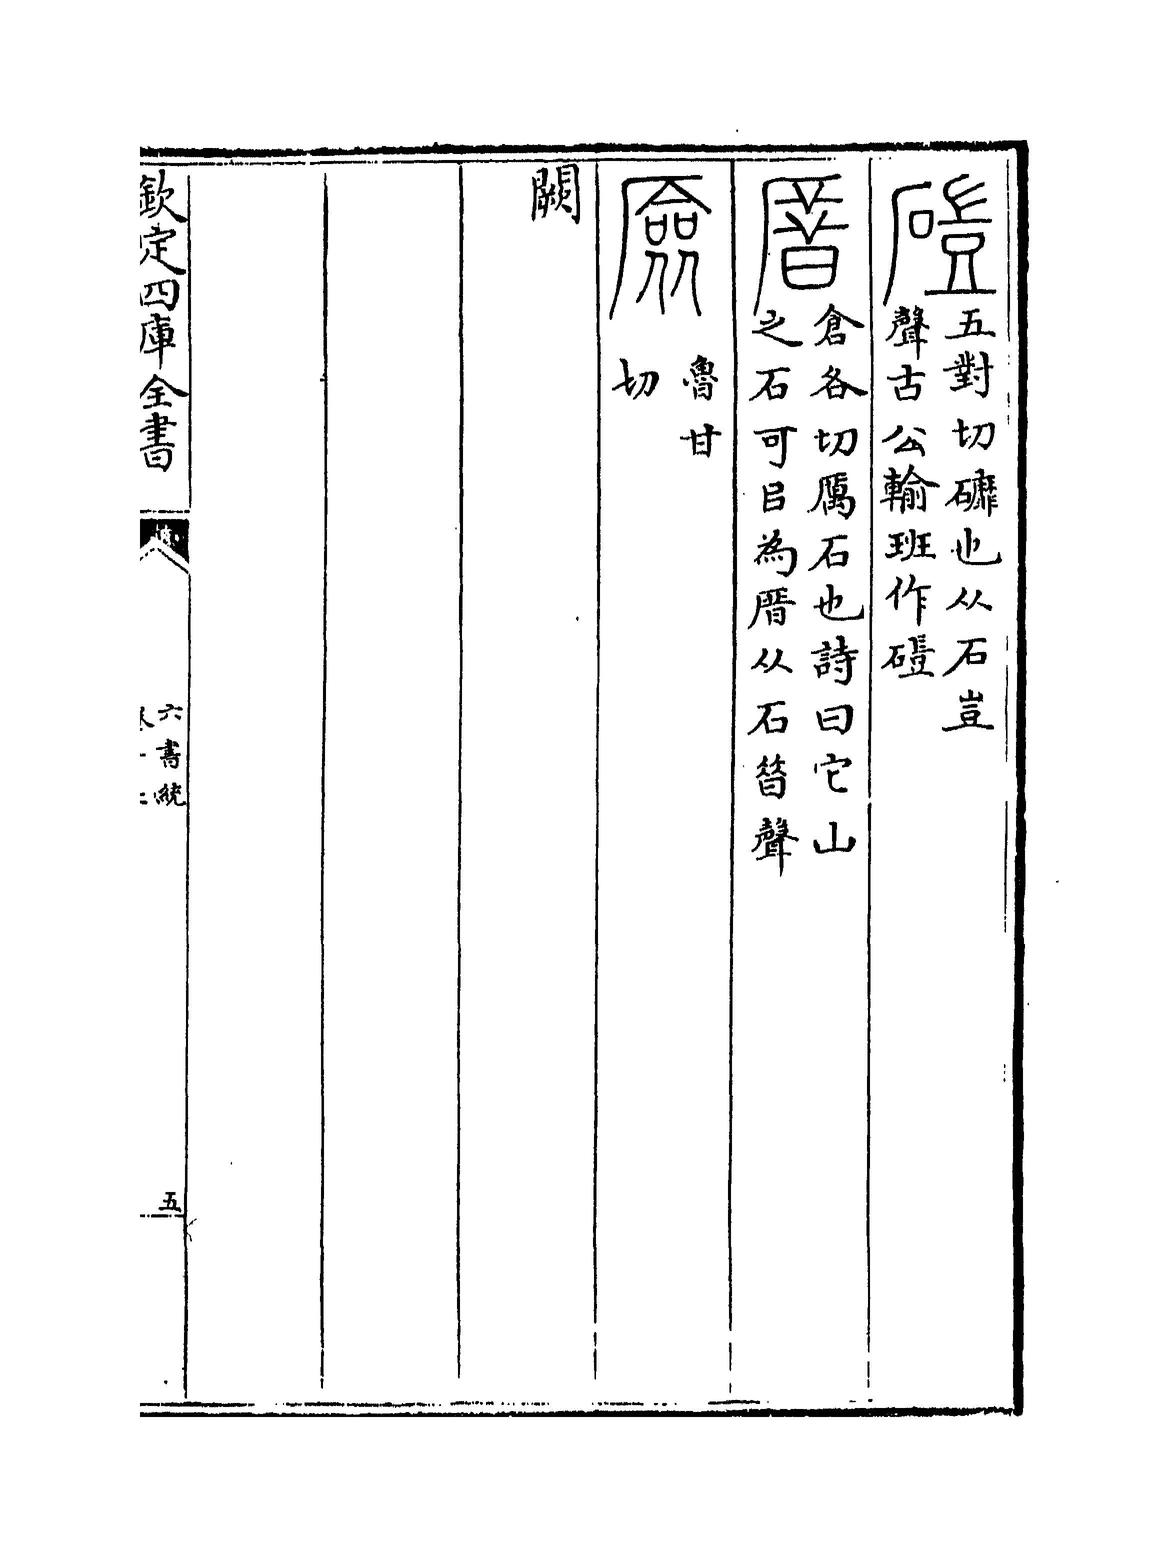 磑
五對切䃺也从石豈
聲古公輸班作磑
厝
倉各切厲石也詩曰它山
之石可㠯為厝从石㫺聲
厱
魯甘
切
闕
欽定四庫全書
六書統
五